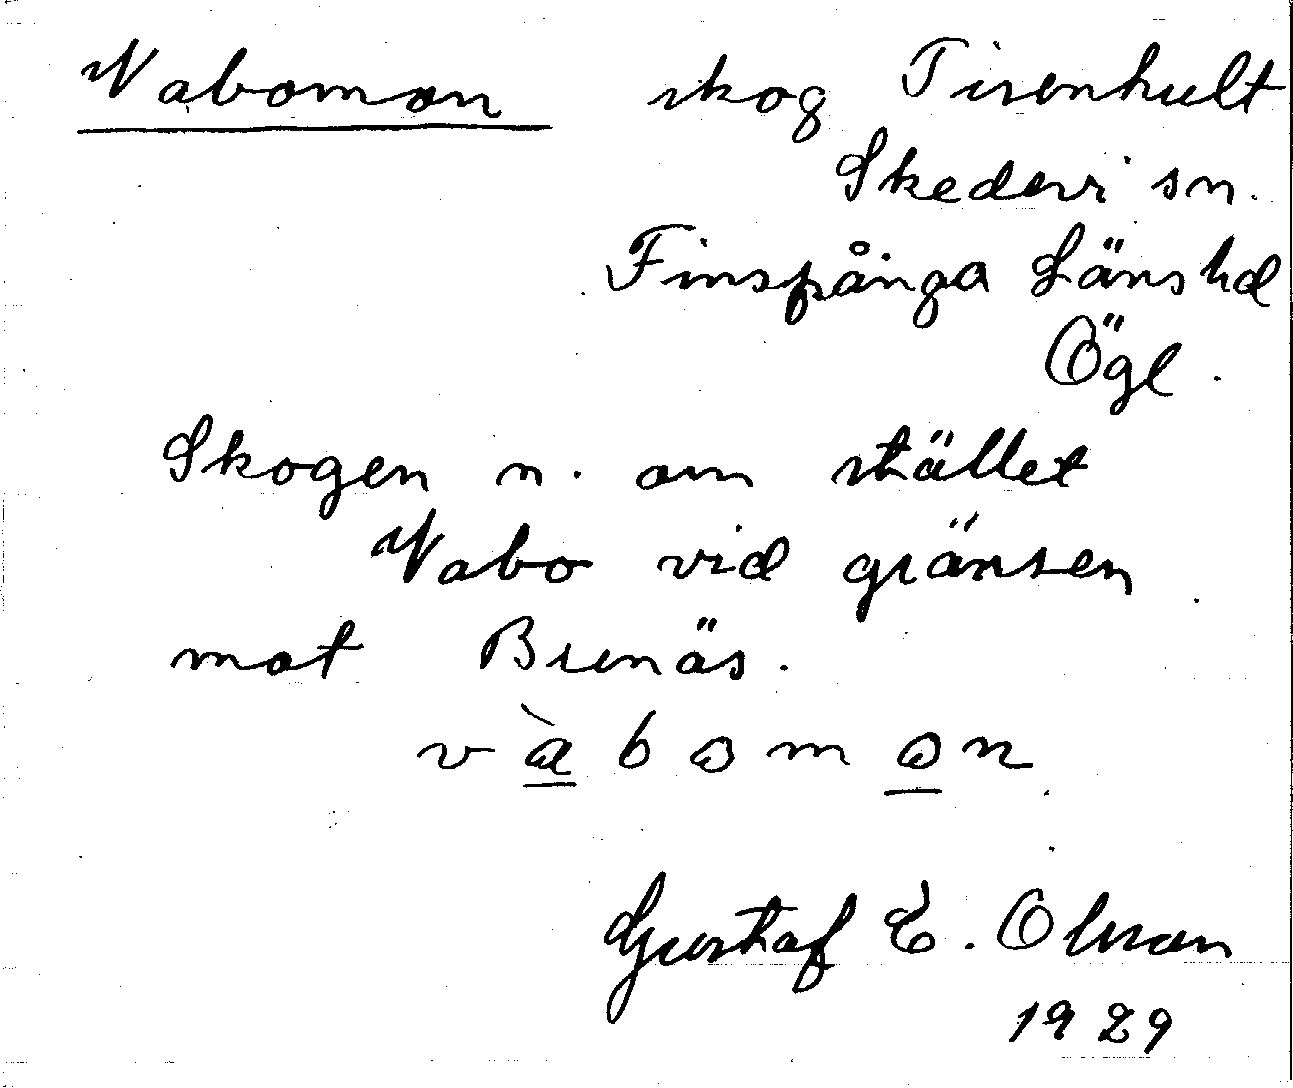 Vabomon skog Tisenhult
Skedevi sn.
Finspånga Länshd
Ögl.
Skogen n. om stället
Vabo vid gränsen
mot Brenäs.
v à b o m o n
Gustaf E. Olsson
1929